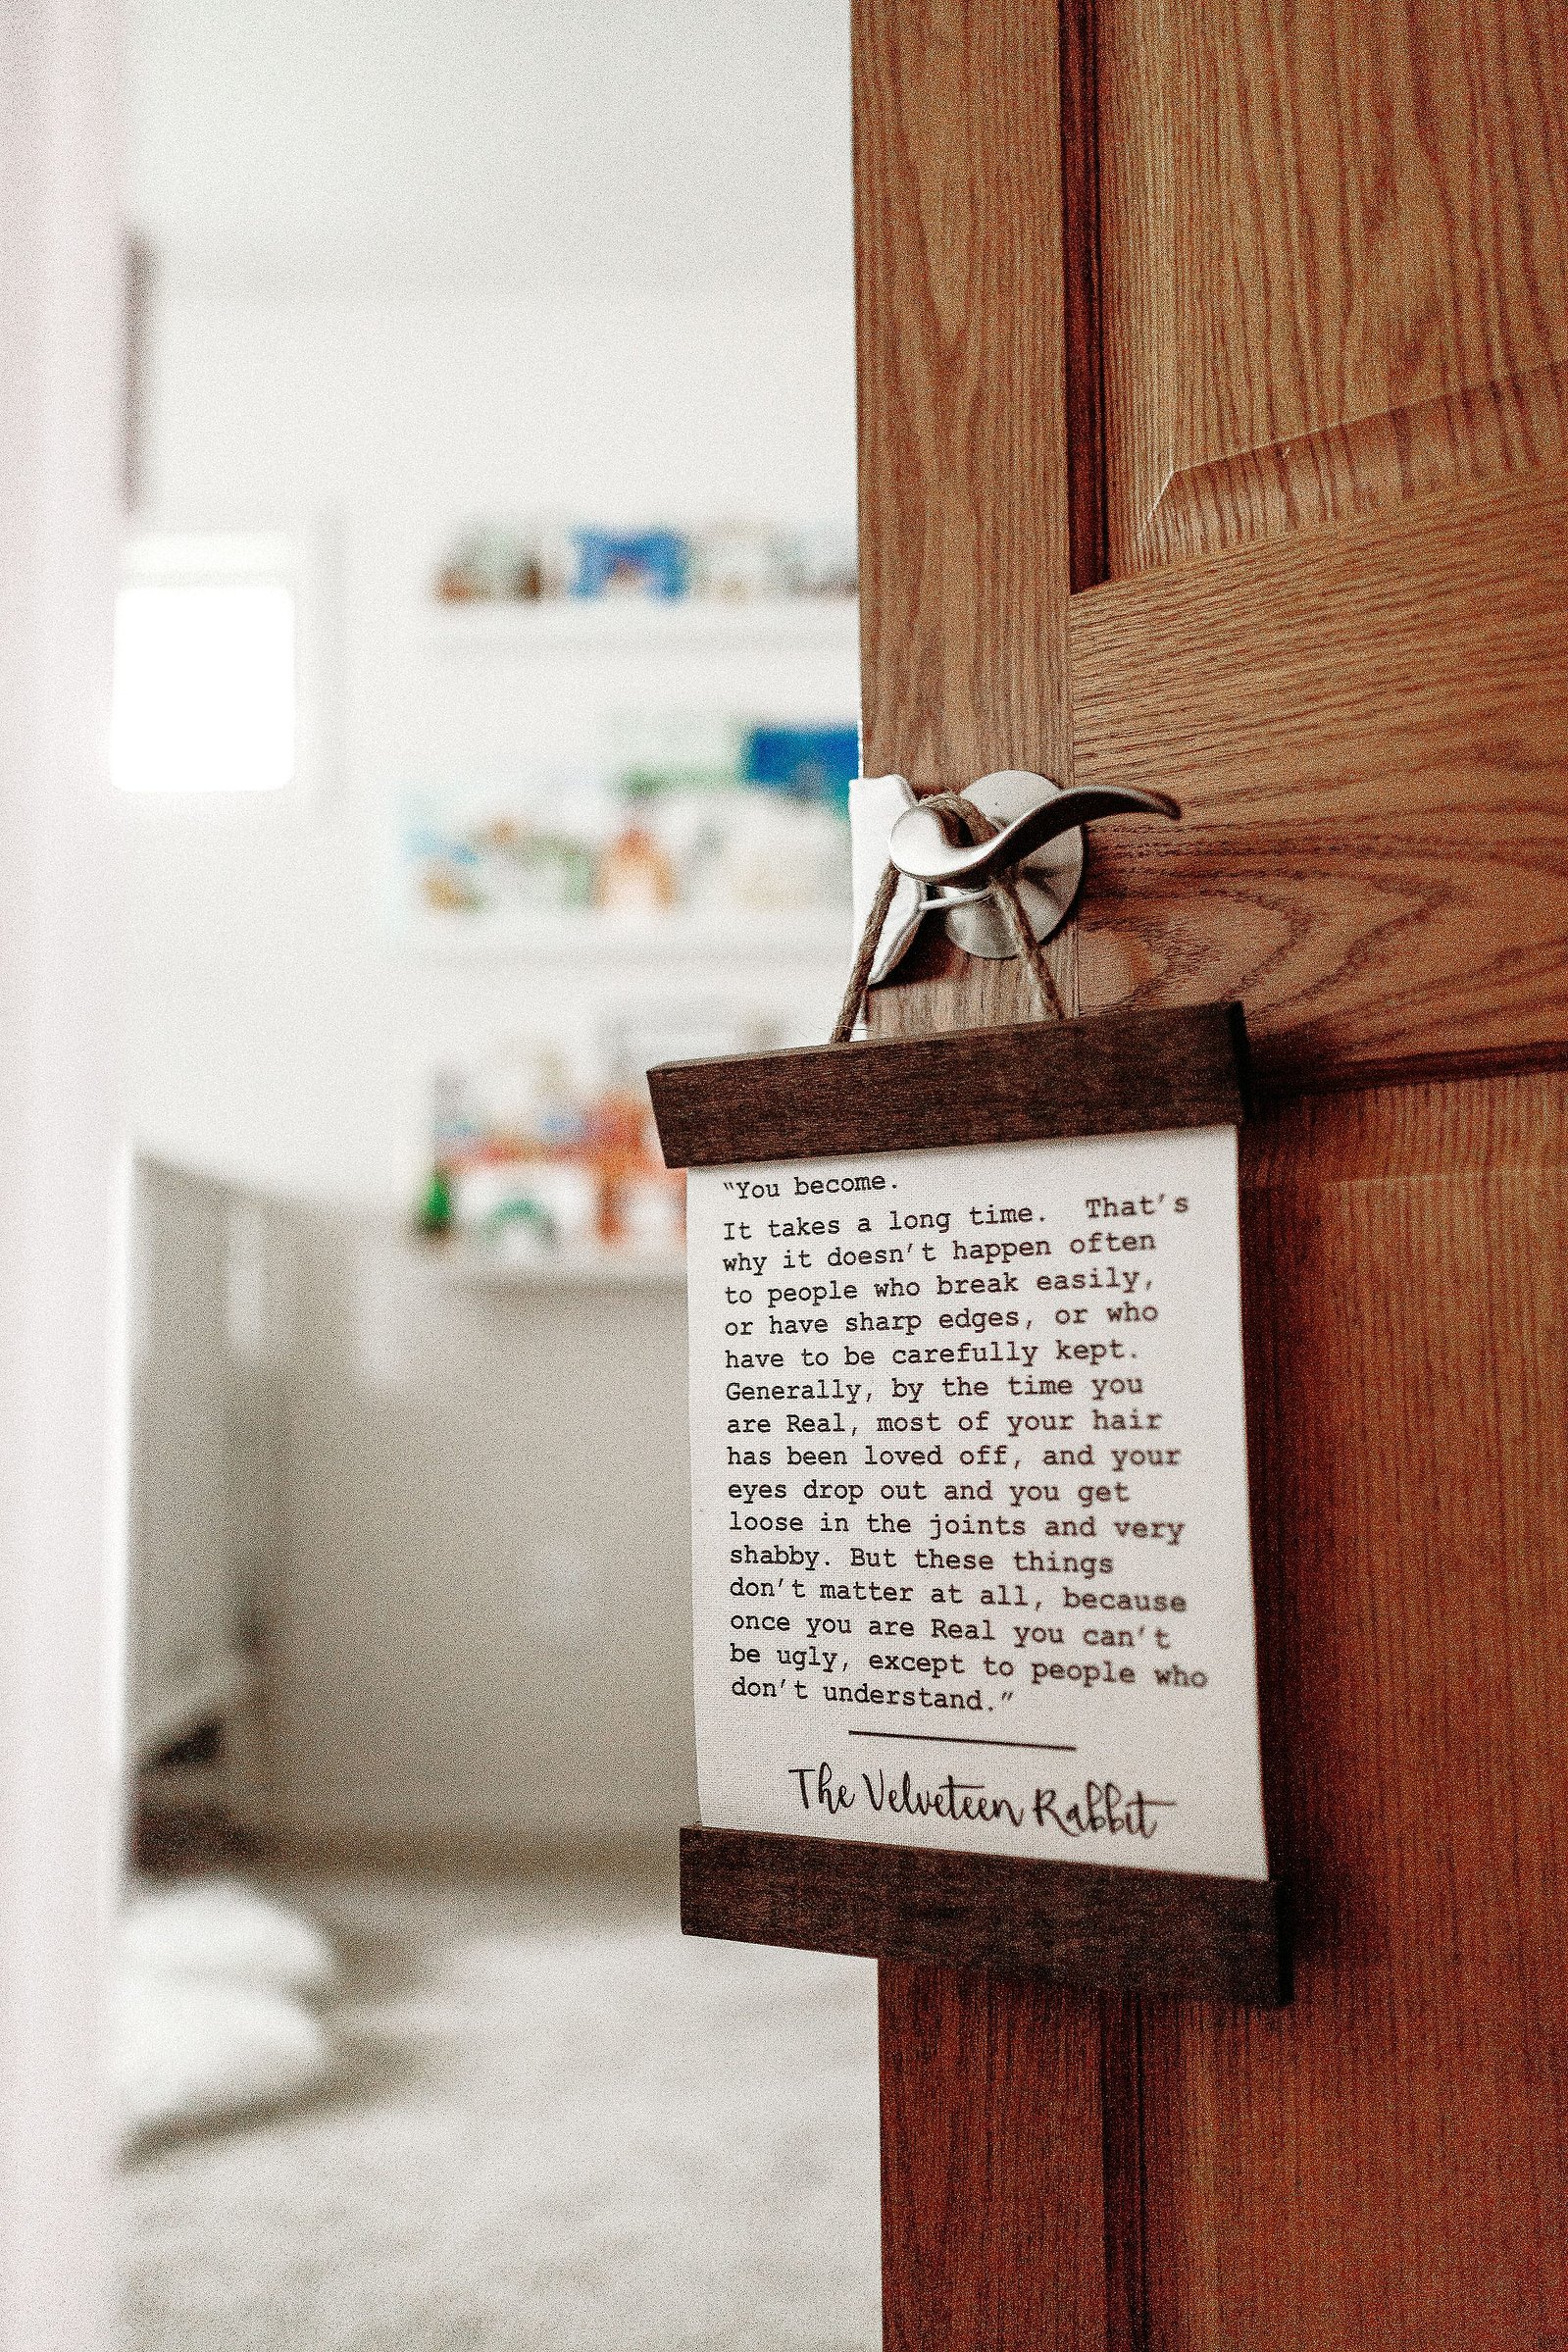 "You become.
It takes a long time. That's
why it doesn't happen often
to people who break easily,
or have sharp edges, or who
have to be carefully kept.
Generally, by the time you
are Real, most of your hair
has been loved off, and your
eyes drop out and you get
loose in the joints and very
shabby. But these things
don't matter at all, because
once you are Real you can't
be ugly, except to people who
don't understand."
The Velveteen Rabbit